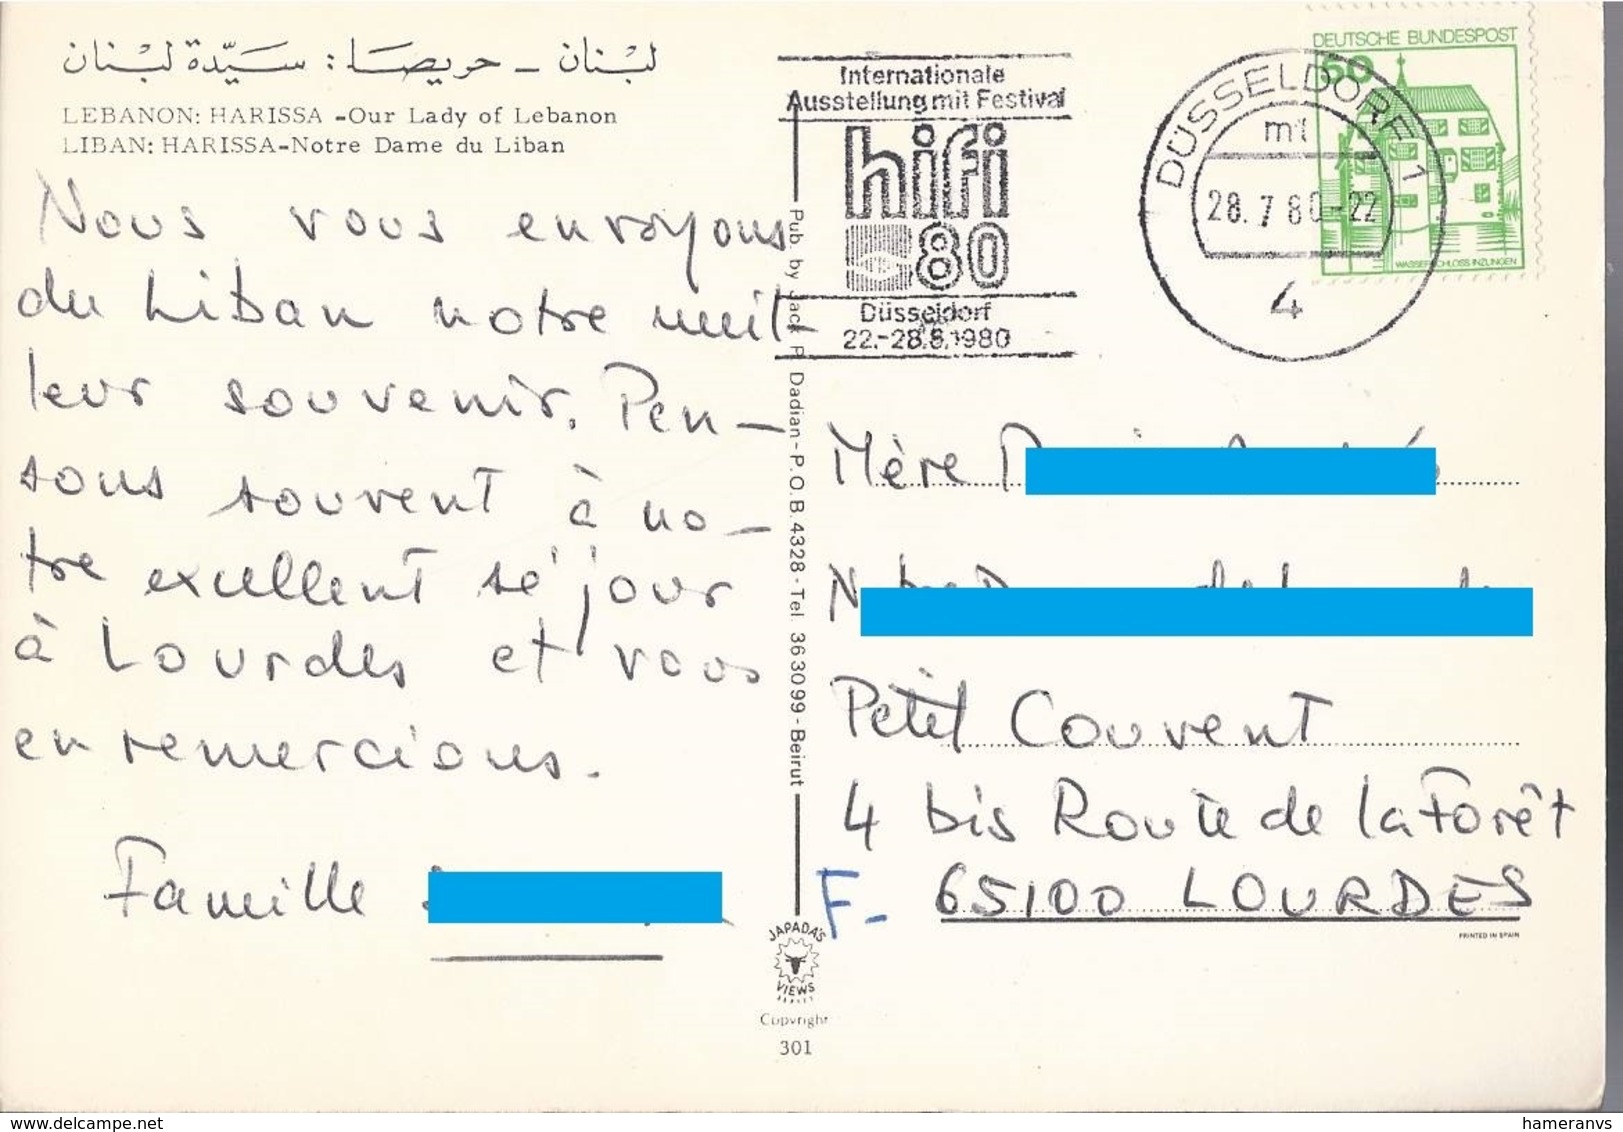 لبنان - حريصا : سيّدة لبنان
LEBANON: HARISSA -Our Lady of Lebanon
LIBAN: HARISSA-Notre Dame du Liban
Nous vous envoyons
du Liban notre meil-
leur souvenir. Pen-
sons souvent à no-
tre excellent séjour
à Lourdes et vous
en remercions.
Famille
Pub. by Jack P. Dadian - P.O.B. 4328 - Tel. 363099 - Beirut
JAPADA'S
VIEWS
Copyright
301
Internationale
Ausstellung mit Festival
hifi
80
Düsseldorf
22.-28.8.1980
DÜSSELDORF 1
mt
28.7 80-22
4
DEUTSCHE BUNDESPOST
60
WASSERSCHLOSS INZLINGEN
Mère
Petit Couvent
4 bis Route de la Forêt
F- 65100 LOURDES
PRINTED IN SPAIN
delcampe.net
hameranvs